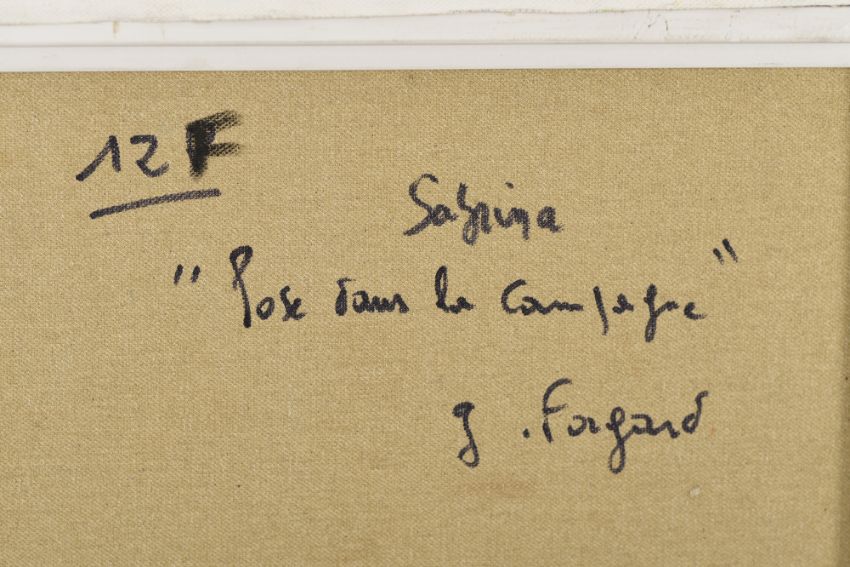 12 F
Sabrina
" Pose dans la Campagne "
g . Forgard